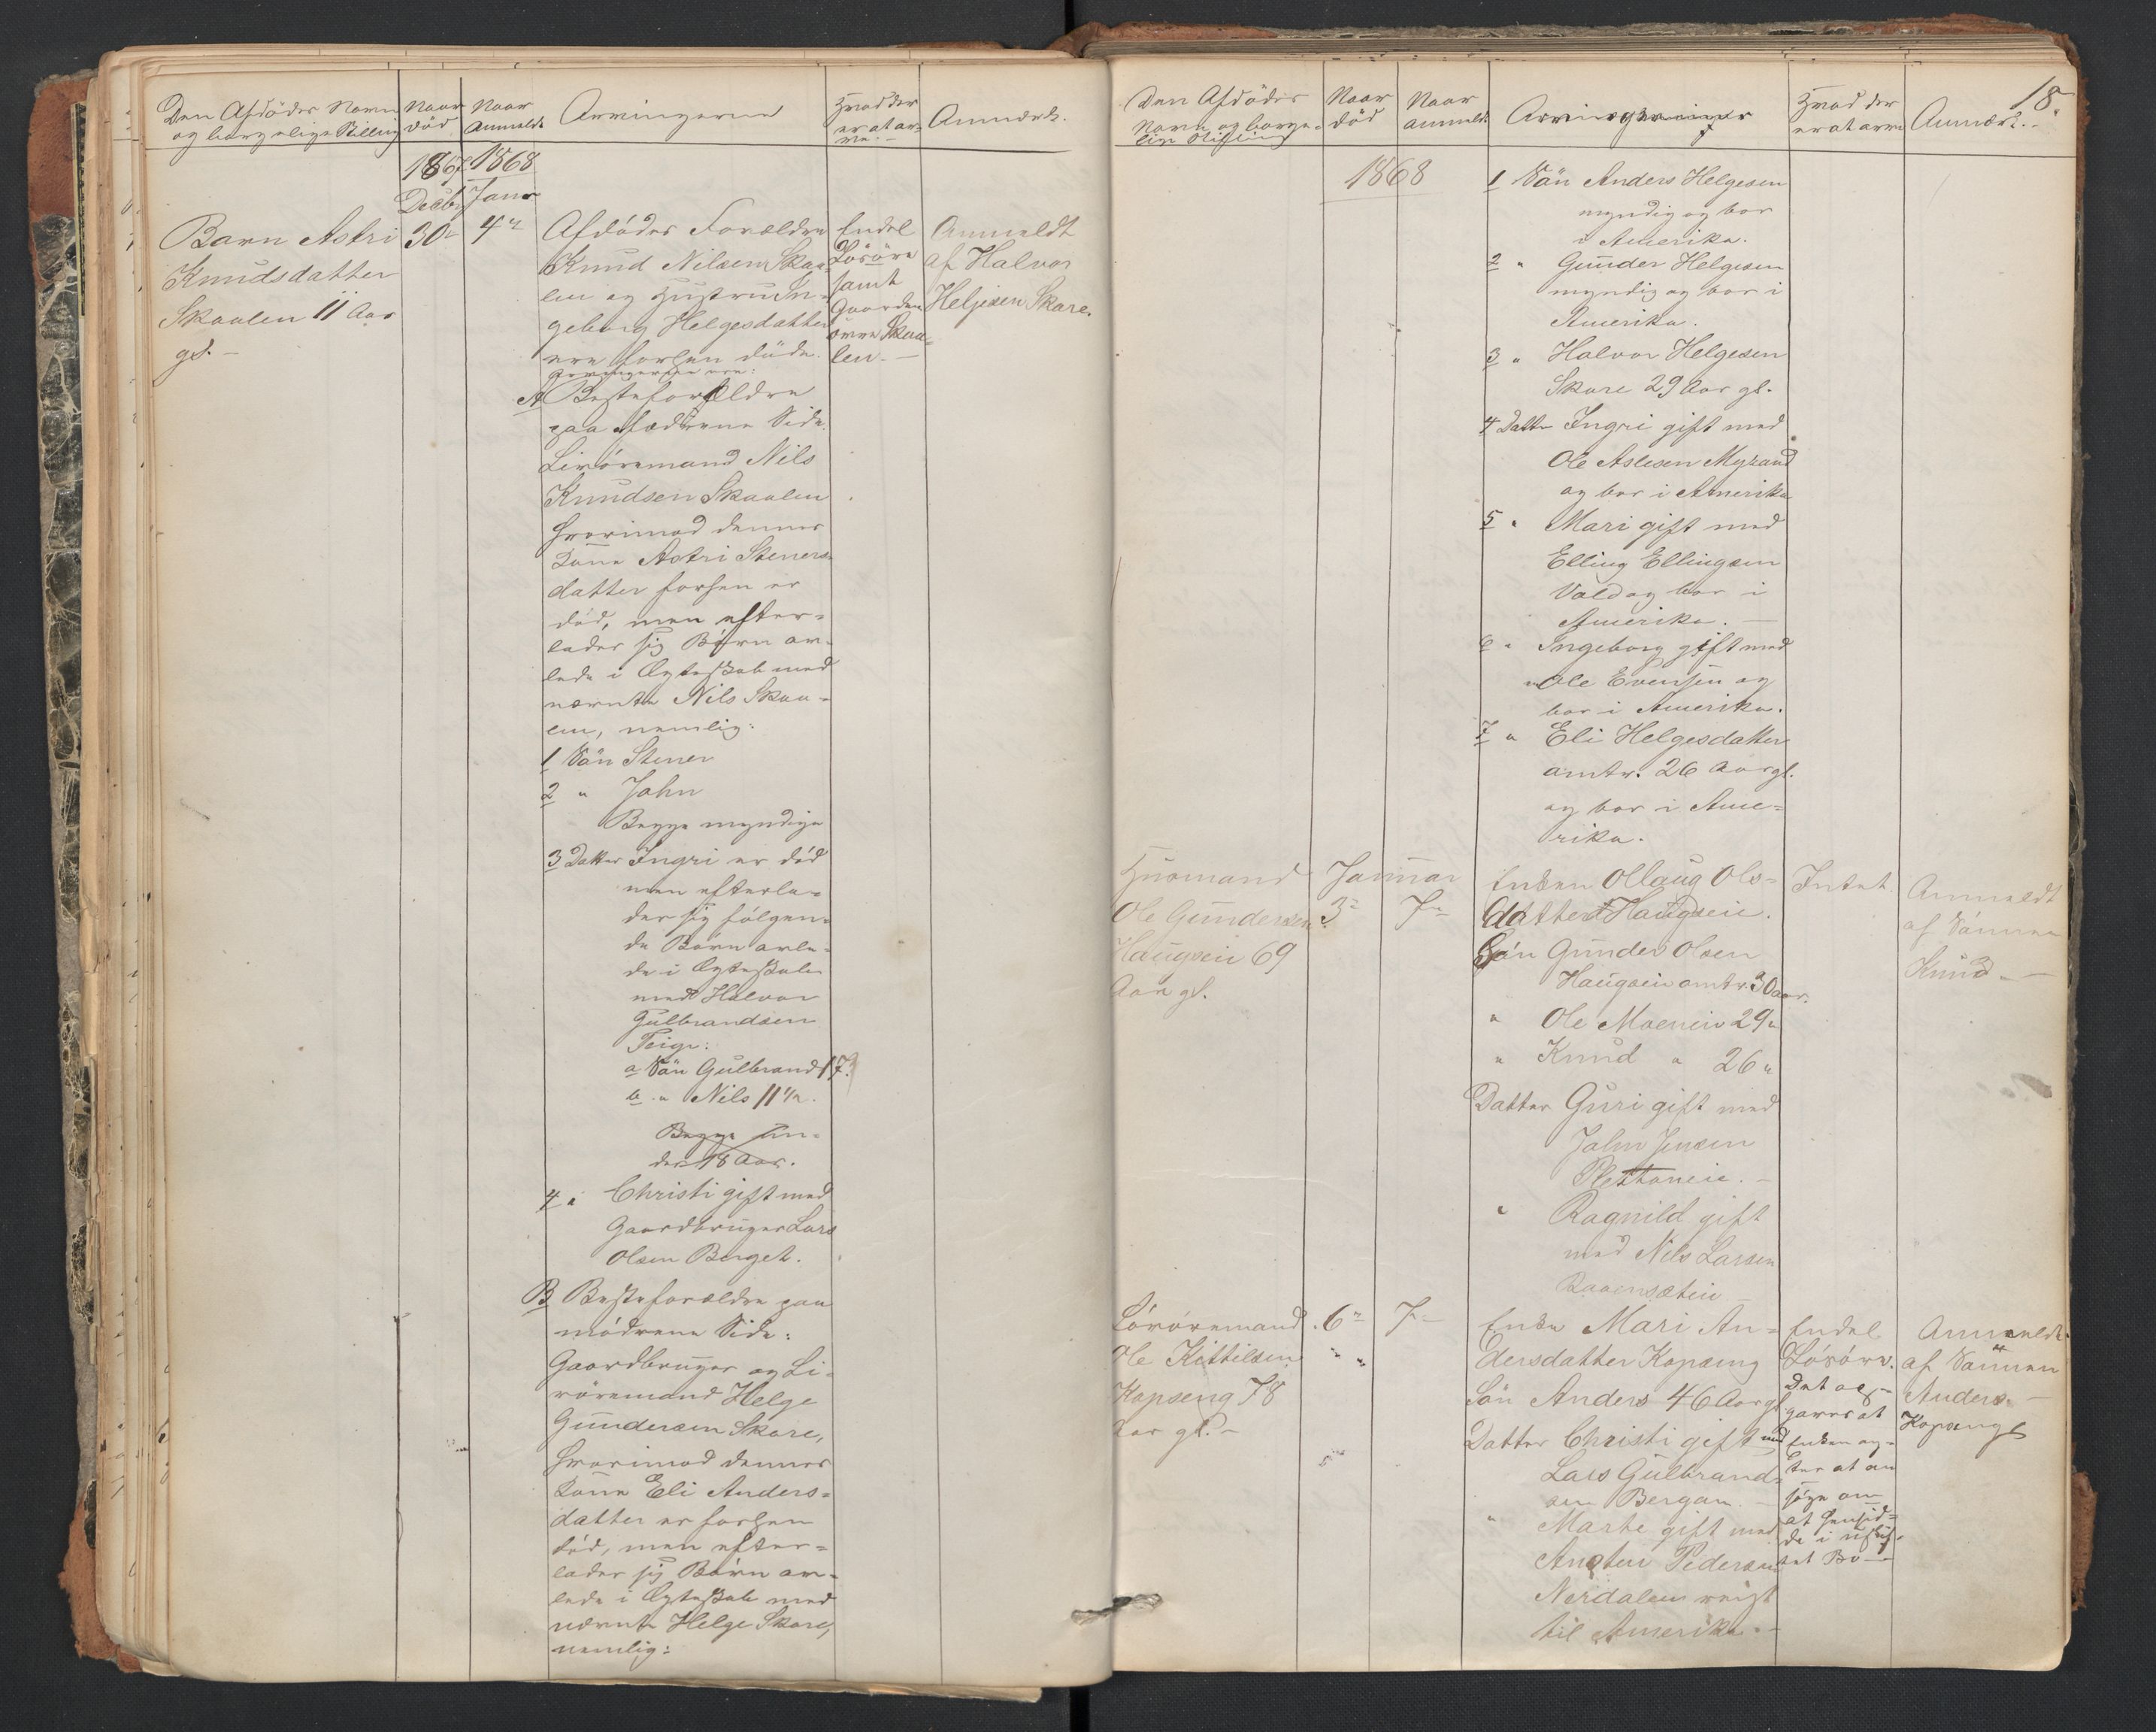 Den Afdödes Navn
og borgerlige Stilling
Naar
död
Naar
Anmeldt
Arvingerne
Hvad der
er at ar-
ve.
Anmærk.
1867
Decbr
1868
Janr
Barn Astri
Knudsdatter
Skaalen 11 Aar
gl. -
30te
4de
Afdödes Forældre
Knud Nilsen Skaa-
len og Hustru In-
geborg Helgesdatter
ere forhen döde.
Arvingerne ere:
A Bedsteforældre
paa fædrene Side.
Livöremand Nils
Knudsen Skaalen
hvorimod dennes
Kone Astri Steners-
datter forhen er
död, men efter-
lader sig Börn av-
lede i Ægteskab med
nævnte Nils Skaa-
len, nemlig:
1 Sön Stener
2 " John
Begge myndige
3 Datter Ingri er död
men efterla-
der sig fölgen-
de Börn avle-
de i Ægteskab
med Halvor
Gulbrandsen
Teige:
a Sön Gulbrand 17
b " Nils 11 1/2.
Begge un-
der 18 Aar.
4 " Christi gift med
Gaardbruger Lars
Olsen Berget.
B Bedsteforældre paa
mödrene Side:
Gaardbruger og Li-
vöremand Helge
Gundersen Skare,
hvorimod dennes
Kone Eli Anders-
datter er forhen
död, men efter-
lader sig Börn av-
lede i Ægteskab med
nævnte Helge Skare,
nemlig:
Endel
Lösöre
samt
Gaarden
övre Skaa-
len. -
Anmeldt
af Halvor
Helgesen Skare.
18.
Den Afdödes
Navn og borger-
lige Stilling
Naar
död
Naar
anmeldt
Arvingerne
Hvad der
er at arve
Anmærk. -
1868
1 Sön Anders Helgesen
myndig og bor
i Amerika.
2 " Gunder Helgesen
myndig og bor i
Amerika.
3 " Halvor Helgesen
Skare 29 Aar gl.
4 Datter Ingri gift med
Ole Aslesen Myrand
og bor i Amerika
5 " Mari gift med
Elling Ellingsen
Vold og bor i
Amerika. -
6 " Ingeborg gift med
Ole Evensen og
bor i Amerika.
7 " Eli Helgesdatter
omtr. 26 Aar gl.
og bor i Ame-
rika.
Husmand
Ole Gundersen
Haugseie 69
Aar gl.
Januar
3die
7de
Enken Ollaug Ols-
datter Haugseie.
Sön Gunder Olsen
Haugseie omtr. 30 aar.
" Ole Moeneie 29 "
" Knud " 26 "
Datter Guri gift med
John Jensen
Plettaneie. -
" Ragnild gift
med Nils Larsen
Intet.
Anmeldt
af Sönnen
Knud. -
Livöremand
Ole Kittilsen
Kopseng 78
Aar gl. -
6te
7de
" "
Enke Mari An-
dersdatter Kopseng
Sön Anders 46 Aar gl.
Datter Christi gift med
Lars Gulbrand-
sen Bergan. -
" Marte gift med
Ansten Pedersen
Nerdalen reist
til Amerika. -
Endel
Lösöre.
Det op-
gaves at
Enken ag-
ter at an
söge om
at hensid-
de i uskif-
tet Bo -
Anmeldt
af Sönnen
Anders -
Kopseng